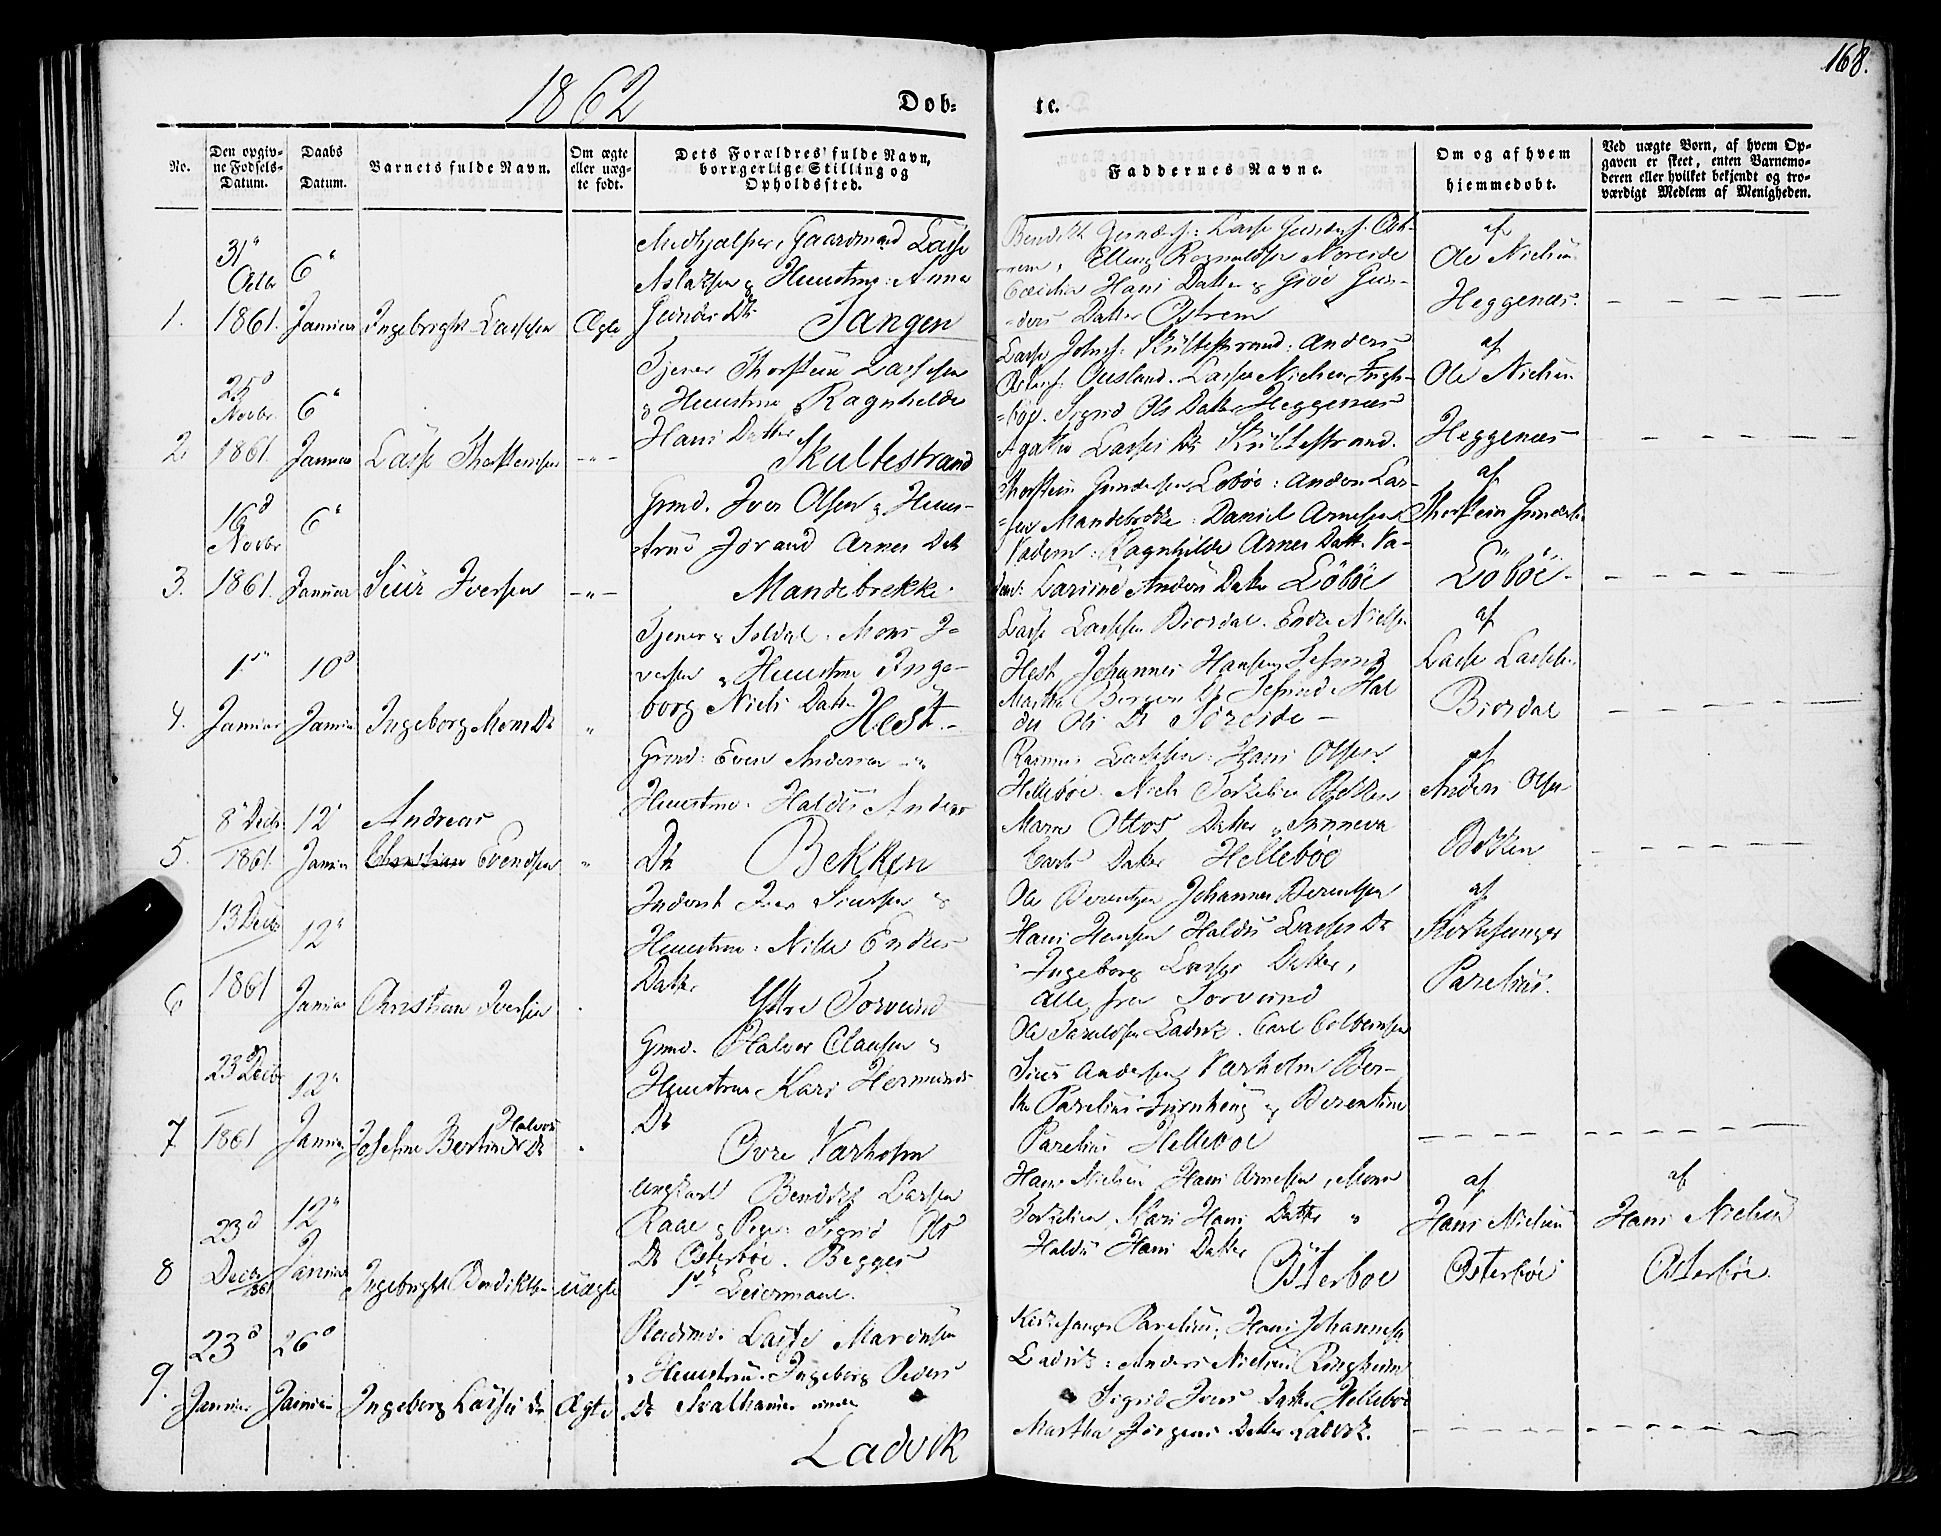 168.
1862
Dob=
te.
No.
Den opgiv=
ne Fodsels=
Datum.
Daabs
Datum.
Barnets fulde Navn.
Om ægte
eller uæg=
te fodt.
Dets Forældres fulde Navn,
borrgerlige Stilling og
Opholdssted.
Faddernes Navne.
Om og af hvem
hjemmedobt.
Ved uægte Born, af hvem Op=
gaven er skeet, enten Barnemo=
deren eller hvilket bekjendt og tro=
værdigt Medlem af Menigheden.
1.
31
Octbr
1861.
6
Januar
Ingebrigt Lassen
Ægte
Gaardmand Lasse
Aslaksen & Huustrue: Anna
Dtr
Tangen
Elling Noreide
Hans Datter &
Datter Ostrem
af
Ole Nielsen
Heggenæs.
2
25d
Novbr.
1861.
6
Januar
Lasse Thorstensen
Tjener Thorstein Lassesen
& Huustrue Ragnhilde
Hans Datter
Skultestrand
Lasse Johns: Skultestrand: Anders
Lasse Nielsen
Sigrid Ols Datter Heggenæs
Agatha Lasses Dtr Skultestrand.
af
Ole Nielsen
Heggenæs
3.
16d
Novbr
1861.
6
Januar
Siur Iversen
Grmd. Iver Olsen & Huus-
true Jorand Arnes Dtr
Mandebrekke.
Thorstein Gundersen Løbøe: Anders Las-
sen Mandebrekke: Daniel Arnesen
Vadem: Ragnhilde Arnes Datt. Va-
dem: Anders Datter Løbøe
af
Thorstein
Løböe
4.
1
Januar
10d
Januar
Ingeborg Mons Dt
Tjener & Soldat: Mons I-
versen & Huustrue Inge-
borg Niels Datter
Hest.
Lasse Lassesen Biordal. Endre Nielsen
Hest Johannes Hansen
Martha
Ols Dt Söreide
af
Lasse Lassesen
Biordal
5.
8 Decbr
1861.
12
Januar
Andreas
Christian Evendsen
Grmd: Even Andersen
Huustrue: Haldis Anders
Dtr Bekken
Rasmus Lassesen: Hans Olsen
Hellebøe. Niels Torkelsen Bekken
Maren Ottos Datter Sünneva
Datter Hellebøe
af
Anders Olsen
Bekken
6
13 Decbr
1861
12
Januar
Christian Iversen
Inderst Iver Siursen &
Huustrue: Endres
Datter
Yttre Torvund
Ole Berentsen Johannes Berentsen
Hans Hansen Haldis Lasses Dt
Ingeborg Lasses Datter,
alle fra Torvund
af
Kirkesanger
Parelius.
7
23 Decbr
1861
12
Januar
Halvors
Josefine Bertine Dt
Grmd. Halvor Clausen &
Huustrue Kari Hermunds
Dt
Øvre Varholm
Ole Ladvik. Carl
Siur Andersen Varholm Ber-
the Parelius & Berentine
Parelius Hellebøe
8
23d
Decbr
1861
12
Januar
Ingebrigt Bendiksen
uægte
Ungkarl Bendik Larsen
Raae & Pige: Sigrid Ols
Dt Österbøe. Begges
1st Leiermaal.
Hans Nielsen Hans Arnesen, Mons
Torkelsen Kari Hans Datter
Haldis Hans Datter
Österboe
af
Hans Nielsen
Østerbøe
af
Hans Nielsen
Østerbøe.
9.
23d
Januar
26d
Januar
Ingeborg Lasses Dt
Ægte
Lasse
& Huustrue: Ingeborg Peders
Dt
Ladvik
Kirkesanger Parelius, Hans Johannes
Ladvik: Anders Nielsen Ringheim
Sigrid Ivers Datter Hellebøe
Martha Jörgens Datter Ladvik.